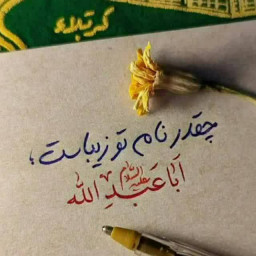 کربلاء
چقدر نام تو زیباست؛
اَبا عَبدِ الله علیه السلام